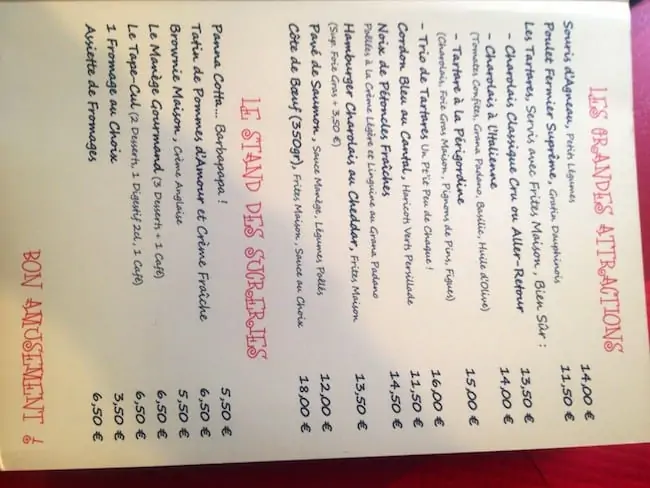 LES GRANDES ATTRACTIONS
Souris d'Agneau, Petits Légumes 14,00 €
Poulet Fermier Suprême, Gratin Dauphinois 11,50 €
Les Tartares, Servis avec Frites Maison, Bien Sûr :
- Charolais Classique Cru ou Aller-Retour 13,50 €
- Charolais à l'Italienne 14,00 €
(Tomates Confites, Grana Padano, Basilic, Huile d'Olive)
- Tartare à la Périgordine 15,00 €
(Charolais, Foie Gras Maison, Pignons de Pins, Figues)
- Trio de Tartares Un P'tit Peu de Chaque ! 16,00 €
Cordon Bleu au Cantal, Haricots Verts Persillade 11,50 €
Noix de Pétoncles Fraîches 14,50 €
Poêlées à la Crème Légère et Linguine au Grana Padano
Hamburger Charolais au Cheddar, Frites Maison 13,50 €
(Sup. Foie Gras + 3,50 €)
Pavé de Saumon, Sauce Manège, Légumes Poêlés 12,00 €
Côte de Bœuf (350gr), Frites Maison, Sauce au Choix 18,00 €
LE STAND DES SUCRERIES
Panna Cotta... Barbapapa ! 5,50 €
Tatin de Pommes d'Amour et Crème Fraîche 6,50 €
Brownie Maison, Crème Anglaise 5,50 €
Le Manège Gourmand (3 Desserts + 1 Café) 6,50 €
Le Tape-Cul (2 Desserts, 1 Digestif 2cl, 1 Café) 6,50 €
1 Fromage au Choix 3,50 €
Assiette de Fromages 6,50 €
BON AMUSEMENT !